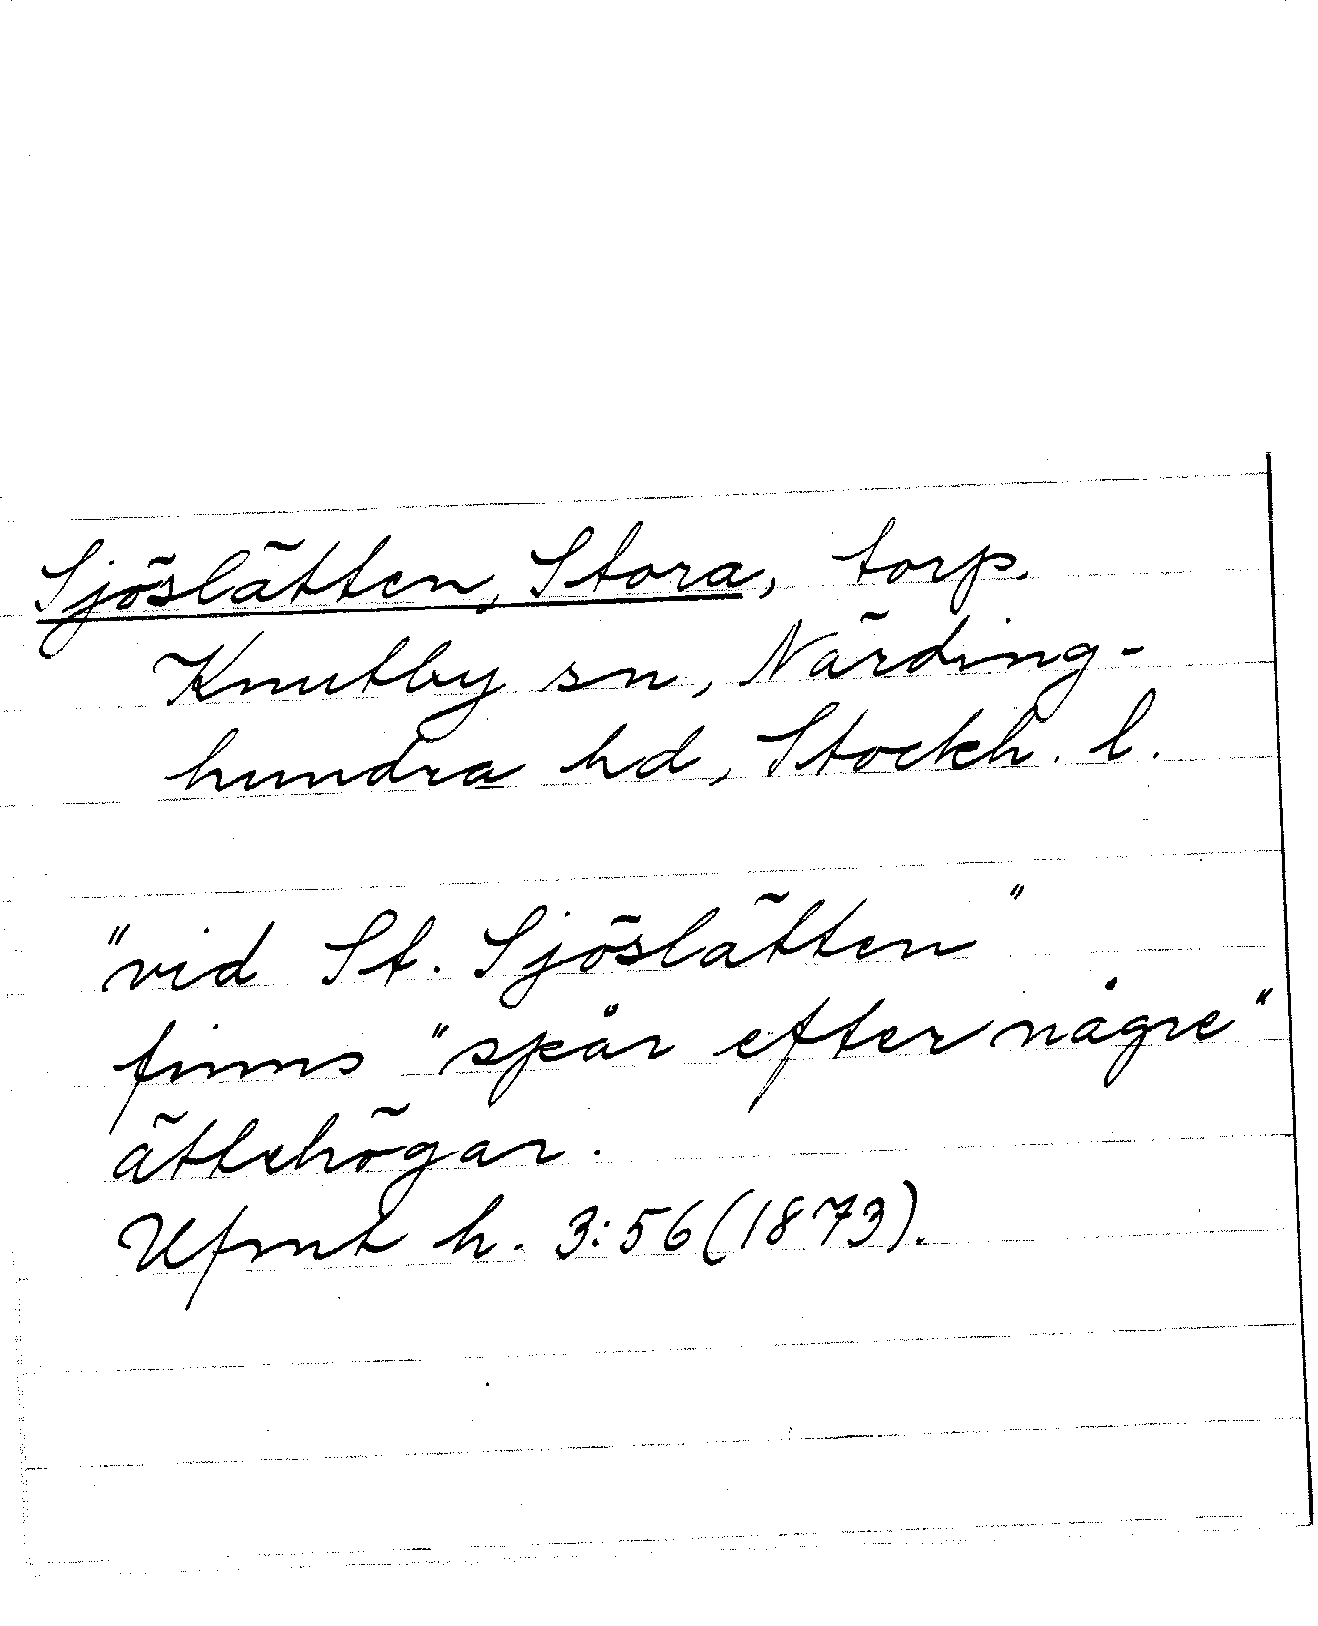 Sjöslätten, Stora, torp.
Knutby sn, Närding-
hundra hd, Stockh. l.
"vid St. Sjöslätten"
finns "spår efter någre"
ättehögar.
Ufmt h. 3:56 (1873).